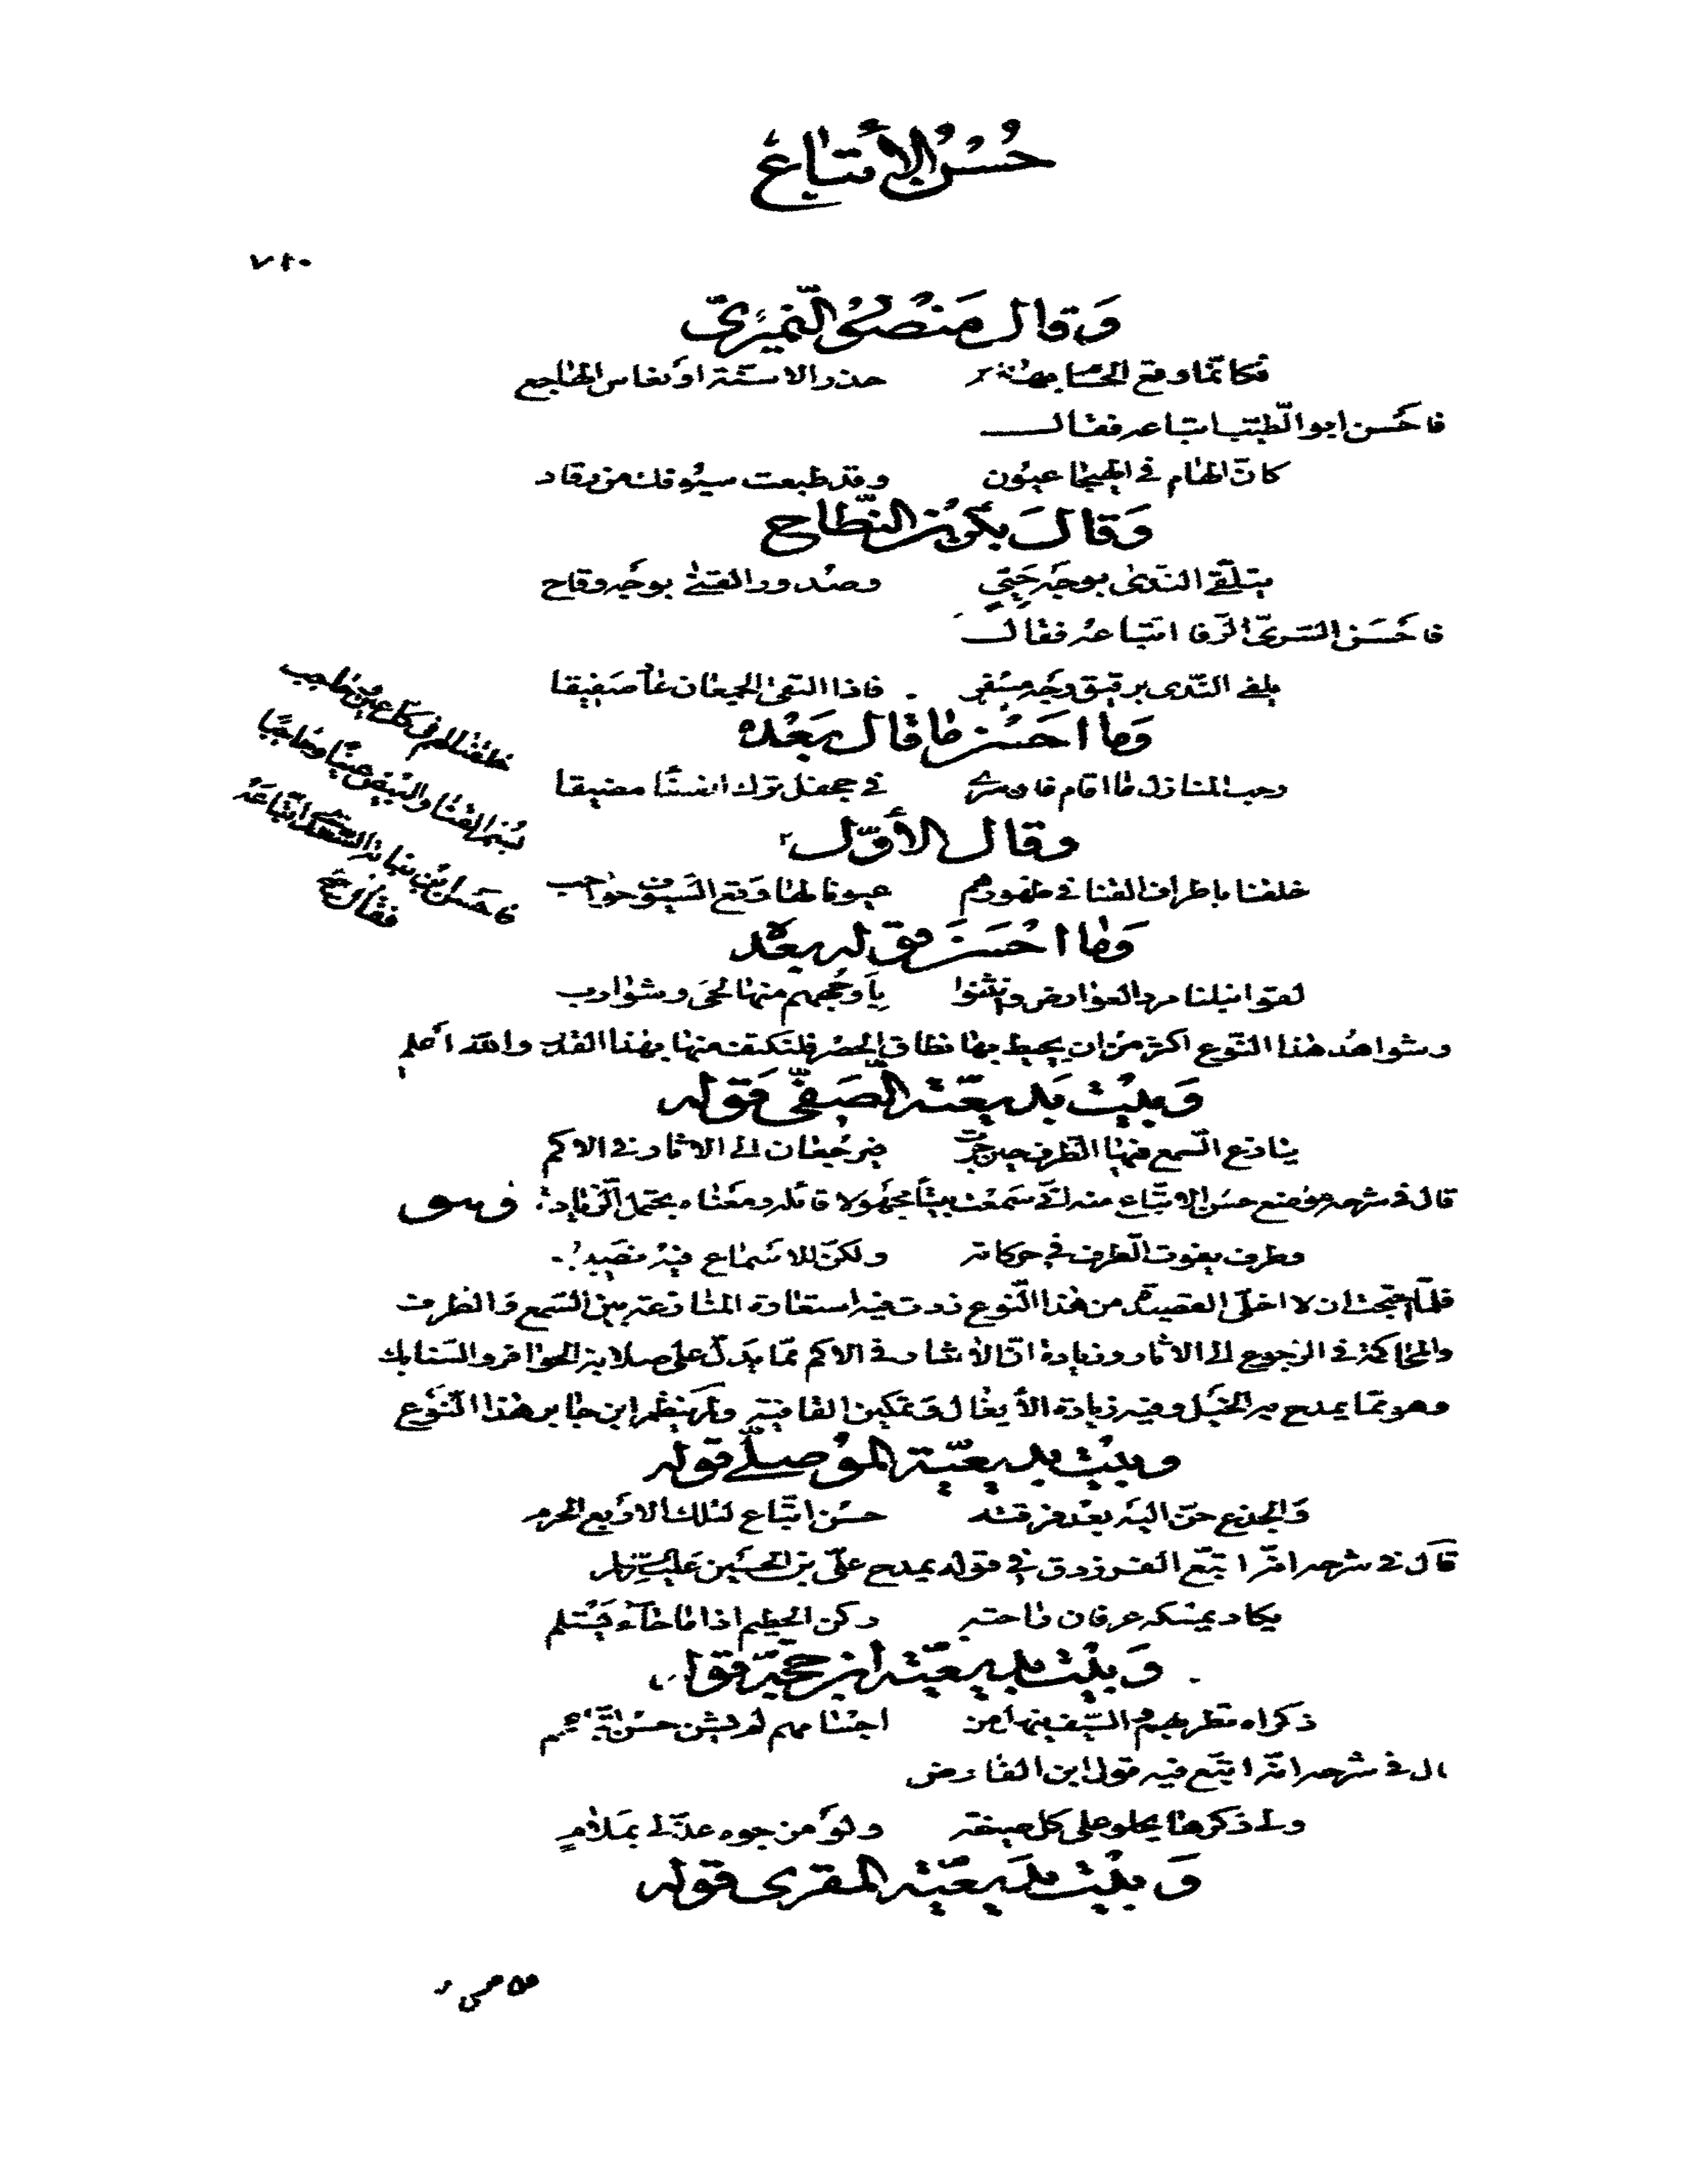 حُسْنُ الأتباع
٧١٠
وَقال مَنصُور النّميَريّ
فكانّما وقع الحسام بهامه حذر الاسنّة او نعاس الهاجع
فاحسن ابو الطّيّب اتباعه فقال
كانّ الهام في الهيجا عيون وقد طبعت سيُوفك من رقاد
وَقالَ بكر بن النّطاح
يتلقّى النّدى بوجه حَييّ وصدور القنى بوجه وقاح
فاحْسَن السَريّ الرّفا اتّباعه فقال
يلقى النّدى برقيق وجه مسفر فاذا التقى الجمعان عاد صَفيقا
وَما احَسْن ما قال بَعْده
رحب المنازل ما اقام فان سرى في جحفل ترك الفضاء مضيقا
وقال الأوّل
خلقنا باطراف القنا في ظهورهم عيونا لها وقع السّيوف حواجب
خلقنا لهم في كلّ عين وحاجب
بسُمر القنا والبيض عينًا وحاجبًا
فاحسَن ابن نباتة السّعدي اتّباعَهُ
فقال
وَما احْسَنَ قوله بعده
لقوا نبلنا مرد العوارض وانثنوا بأوجُههم منها لحَى وشوارب
وشواهدُ هذا النّوع اكثر من ان يحيط بها نطاق الحصر فلنكتف منها بهذا القدر والله اعلم
وَبيْت بَديعيّته الصَفيّ قوله
ينازع السّمع فيها الطّرف حين جرت فيرجعان الى الاثار في الاكم
قال في شرحه موضع حسن الاتّباع منه انّي سَمعْت بيتاً مجهولا قائله ومعناه يحتمل الزّيادة وهو
وطرف يفوت الطّرف في حركاته ولكنّ للاسماع فيه نصَيب
فلمّا احتجت ان لا اخلّي القصيدة من هذا النّوع زدت فيه استعارة المنازعة بين السّمع وَالطرف
والمحاكمة في الرجوع الى الاثار وزيادة انّ الأثار في الاكم ممّا يدَلّ على صلابة الحوافر والسّنابك
وهو ممّا يمدح به الخيْل وفيه زيادة الأيغال وَتمكين القافية ولم ينظم ابن جابر هذا النّوْع
وبيْت بديعيّة الموْصلّي قوله
وَالجذع حنّ اليه بعْد فرقته حسْن اتّباع لتلك الاربع الحرم
قالَ في شرحه انّه اتبّع الفرزدق في قوله يمدح عليّ بن الحسَين عليه السّلام
يكاد يمسكه عرفان راحته ركن الحطيم اذا ما جاء يَسْتلم
وَبيْت بديعيّته ابن حجّة قوله
ذكراه تطربهم والسّيف ينهل من اجسامهم لم يشن حسْن اتّباعهم
ال في شرحه انّه اتبّع فيه قول ابن الفارض
ولى ذكرها يحلو على كل صيغة ولوْ من جوه عذّلي بمَلامٍ
وَبيْت بدَيعيّته المقري قوله